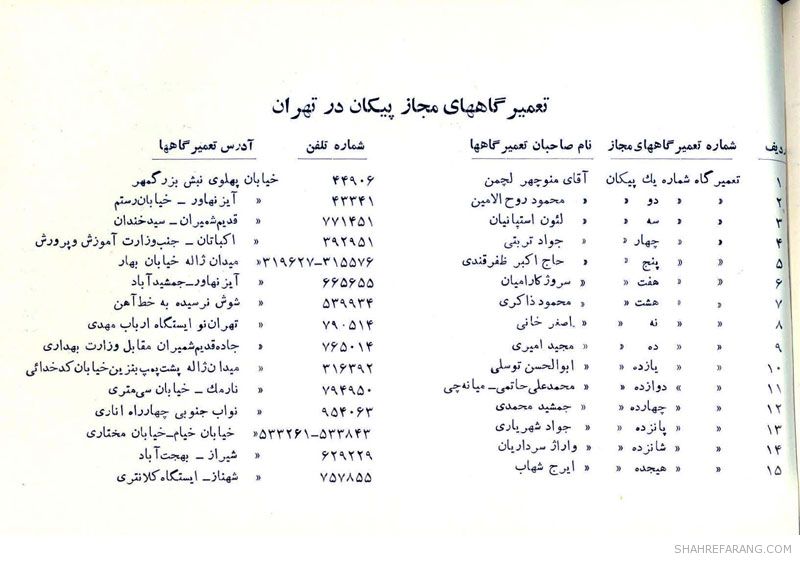 تعمیرگاههای مجاز پیکان در تهران
ردیف شماره تعمیرگاههای مجاز نام صاحبان تعمیرگاهها شماره تلفن آدرس تعمیرگاهها
۱ تعمیرگاه شماره یك پیکان آقای منوچهر لچمن ۴۴۹۰۶ خیابان پهلوی نبش بزرگمهر
۲ » » دو » » محمود روح الامین ۴۳۳۴۱ » آیزنهاور ــ خیابان رستم
۳ » » سه » » لئون استپانیان ۷۷۱۴۵۱ » قدیم شمیران ــ سیدخندان
۴ » » چهار » » جواد تربتی ۳۹۲۹۵۱ » اکباتان ــ جنب وزارت آموزش وپرورش
۵ » » پنج » » حاج اکبر ظفرقندی ۳۱۵۵۷۶ــ۳۱۹۶۲۷ » میدان ژاله خیابان بهار
۶ » » هفت » » سروژ کارامیان ۶۶۵۶۵۵ » آیزنهاورــ جمشیدآباد
۷ » » هشت » » محمود ذاکری ۵۳۹۹۳۴ » شوش نرسیده به خط آهن
۸ » » نه » » اصغر خانی ۷۹۰۵۱۴ » تهران نو ایستگاه ارباب مهدی
۹ » » ده » » مجید امیری ۷۶۵۰۱۴ » جاده قدیم شمیران مقابل وزارت بهداری
۱۰ » » یازده » » ابوالحسن توسلی ۳۱۶۳۹۲ میدان ژاله پشت پمپ بنزین خیابان کدخدائی
۱۱ » » دوازده » » محمدعلی حاتمی ــ میانه چی ۷۹۴۹۵۰ » نارمك ــ خیابان سی متری
۱۲ » » چهارده » » جمشید محمدی ۹۵۴۰۶۳ » نواب جنوبی چهارراه اناری
۱۳ » » پانزده » » جواد شهریاری ۵۳۳۸۴۳ــ۵۳۳۲۶۱ » خیابان خیام ــ خیابان مختاری
۱۴ » » شانزده » » واراژ سرداریان ۶۲۹۲۲۹ » شیراز ــ بهجت آباد
۱۵ » » هیجده » » ایرج شهاب ۷۵۷۸۵۵ » شهناز ــ ایستگاه کلانتری
SHAHREFARANG.COM